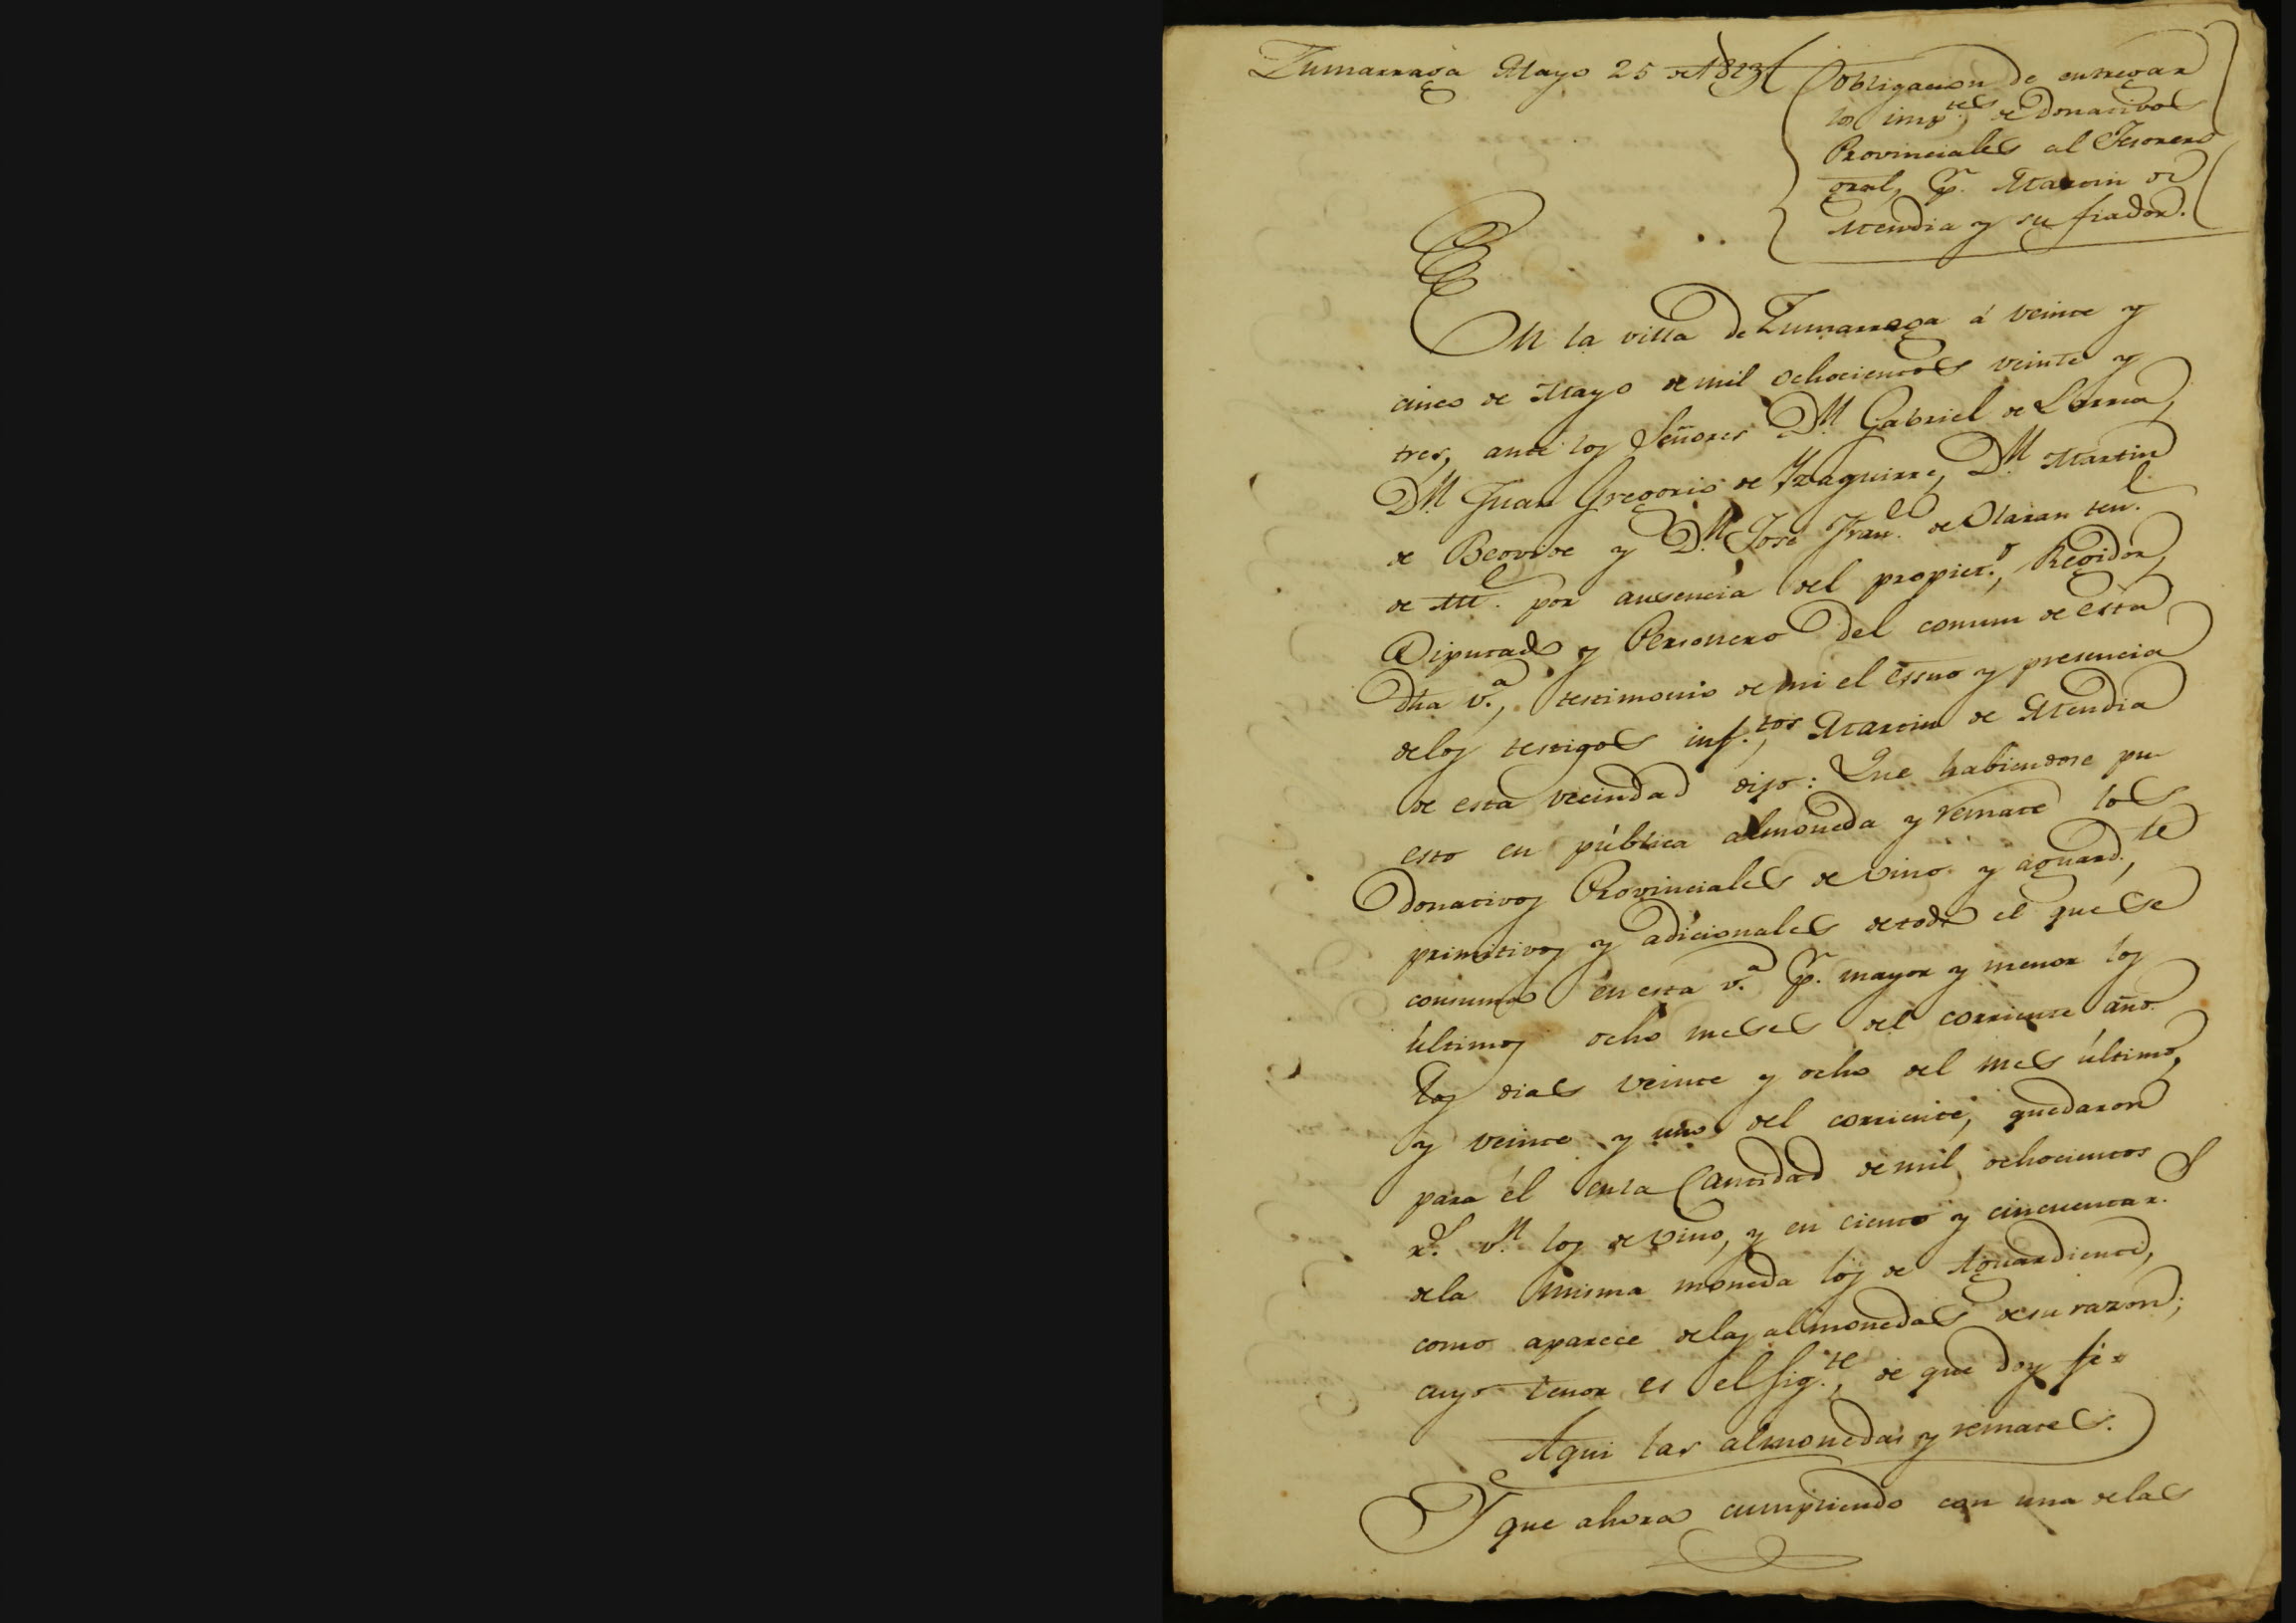 Zumarraga Mayo 25 de 1823
Obligacion de entregar
los imp.tes de Donativos
Provinciales al Tesorero
gral, p.r Martin de
Mendia y su fiador.
En la villa de Zumarraga á veinte y
cinco de Mayo de mil ochocientos veinte y
tres, ante los Señores D.n Gabriel de
D.n Juan Gregorio de Yzaguirre, D.n Martin
de Beovide y D.n José Fran.co de Olaran ten.e
de Alc.e por ausencia del propiet.o, Regidor,
Diputado y Personero del comun de esta
dha v.a, testimonio de mi el essno y presencia
delos testigos inf.tos Martin de Mendia
de esta vecindad dijo: Que habiendose pu
esto en pública almoneda y remate los
Donativos Provinciales de Vino y aguard.te,
primitivos y adicionales de todo el que se
consuma en esta v.a p.r mayor y menor los
últimos ocho meses del corriente año
los dias veinte y ocho del mes último,
y veinte y uno del corriente, quedaron
para él en la Cantidad de mil ochocientos
r.s v.n los de Vino, y en ciento y cincuenta r.s
dela misma moneda los de Aguardiente,
como aparece delas almonedas de su razon;
cuyo tenor es el sig.te, de que doy fé =
Aqui las almonedas y remates.
Y que ahora cumpliendo con una delas